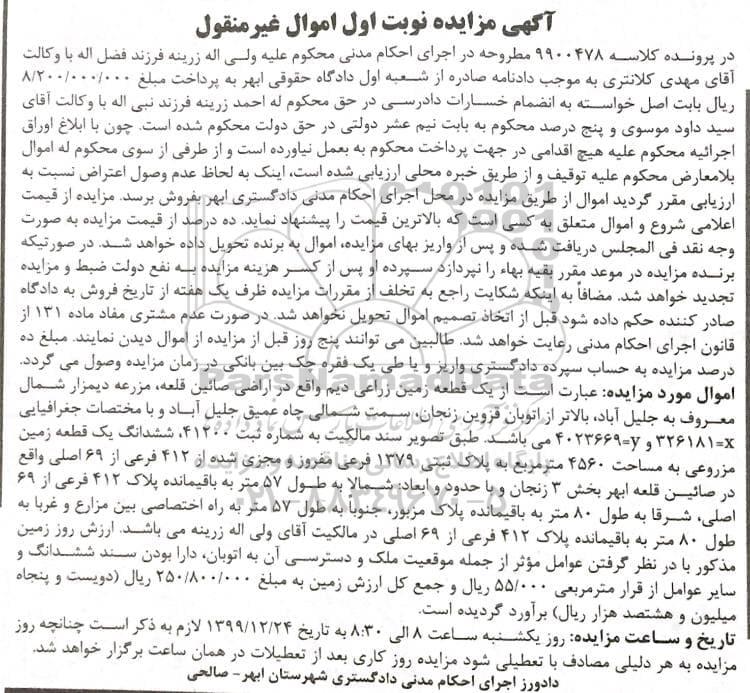 آگهی مزایده نوبت اول اموال غیرمنقول
در پرونده کلاسه ۹۹۰۰۴۷۸ مطروحه در اجرای احکام مدنی محکوم علیه ولی اله زرینه فرزند فضل اله با وکالت
آقای مهدی کلانتری به موجب دادنامه صادره از شعبه اول دادگاه حقوقی ابهر به پرداخت مبلغ ۸/۲۰۰/۰۰۰/۰۰۰
ریال بابت اصل خواسته به انضمام خسارات دادرسی در حق محکوم له احمد زرینه فرزند نبی اله با وکالت آقای
سید داود موسوی و پنج درصد محکوم به بابت نیم عشر دولتی در حق دولت محکوم شده است. چون با ابلاغ اوراق
اجرائیه محکوم علیه هیچ اقدامی در جهت پرداخت محکوم به بعمل نیاورده است و از طرفی از سوی محکوم له اموال
بلامعارض محکوم علیه توقیف و از طریق خبره محلی ارزیابی شده است، اینک به لحاظ عدم وصول اعتراض نسبت به
ارزیابی مقرر گردید اموال از طریق مزایده در محل اجرای احکام مدنی دادگستری ابهر بفروش برسد. مزایده از قیمت
اعلامی شروع و اموال متعلق به کسی است که بالاترین قیمت را پیشنهاد نماید. ده درصد از قیمت مزایده به صورت
وجه نقد فی المجلس دریافت شده و پس از واریز بهای مزایده، اموال به برنده تحویل داده خواهد شد. در صورتیکه
برنده مزایده در موعد مقرر بقیه بهاء را نپردازد سپرده او پس از کسر هزینه مزایده به نفع دولت ضبط و مزایده
تجدید خواهد شد. مضافاً به اینکه شکایت راجع به تخلف از مقررات مزایده ظرف یک هفته از تاریخ فروش به دادگاه
صادر کننده حکم داده شود قبل از اتخاذ تصمیم اموال تحویل نخواهد شد. در صورت عدم مشتری مفاد ماده ۱۳۱ از
قانون اجرای احکام مدنی رعایت خواهد شد. طالبین می توانند پنج روز قبل از مزایده از اموال دیدن نمایند. مبلغ ده
درصد مزایده به حساب سپرده دادگستری واریز و یا طی یک فقره چک بین بانکی در زمان مزایده وصول می گردد.
اموال مورد مزایده: عبارت است از یک قطعه زمین زراعی دیم واقع در اراضی صائین قلعه، مزرعه دیمزار شمال
معروف به جلیل آباد، بالاتر از اتوبان قزوین زنجان، سمت شمالی چاه عمیق جلیل آباد و با مختصات جغرافیایی
x=۳۲۶۱۸۱ و y=۴۰۲۳۶۶۹ می باشد. طبق تصویر سند مالکیت به شماره ثبت ۴۱۲۰۰، ششدانگ یک قطعه زمین
مزروعی به مساحت ۴۵۶۰ مترمربع به پلاک ثبتی ۱۳۷۹ فرعی مفروز و مجزی شده از ۴۱۲ فرعی از ۶۹ اصلی واقع
در صائین قلعه ابهر بخش ۳ زنجان و با حدود و ابعاد: شمالا به طول ۵۷ متر به باقیمانده پلاک ۴۱۲ فرعی از ۶۹
اصلی، شرقا به طول ۸۰ متر به باقیمانده پلاک مزبور، جنوبا به طول ۵۷ متر به راه اختصاصی بین مزارع و غربا به
طول ۸۰ متر به باقیمانده پلاک ۴۱۲ فرعی از ۶۹ اصلی در مالکیت آقای ولی اله زرینه می باشد. ارزش روز زمین
مذکور با در نظر گرفتن عوامل مؤثر از جمله موقعیت ملک و دسترسی آن به اتوبان، دارا بودن سند ششدانگ و
سایر عوامل از قرار مترمربعی ۵۵/۰۰۰ ریال و جمع کل ارزش زمین به مبلغ ۲۵۰/۸۰۰/۰۰۰ ریال (دویست و پنجاه
میلیون و هشتصد هزار ریال) برآورد گردیده است.
تاریخ و ساعت مزایده: روز یکشنبه ساعت ۸ الی ۸:۳۰ به تاریخ ۱۳۹۹/۱۲/۲۴ لازم به ذکر است چنانچه روز
مزایده به هر دلیلی مصادف با تعطیلی شود مزایده روز کاری بعد از تعطیلات در همان ساعت برگزار خواهد شد.
دادورز اجرای احکام مدنی دادگستری شهرستان ابهر- صالحی